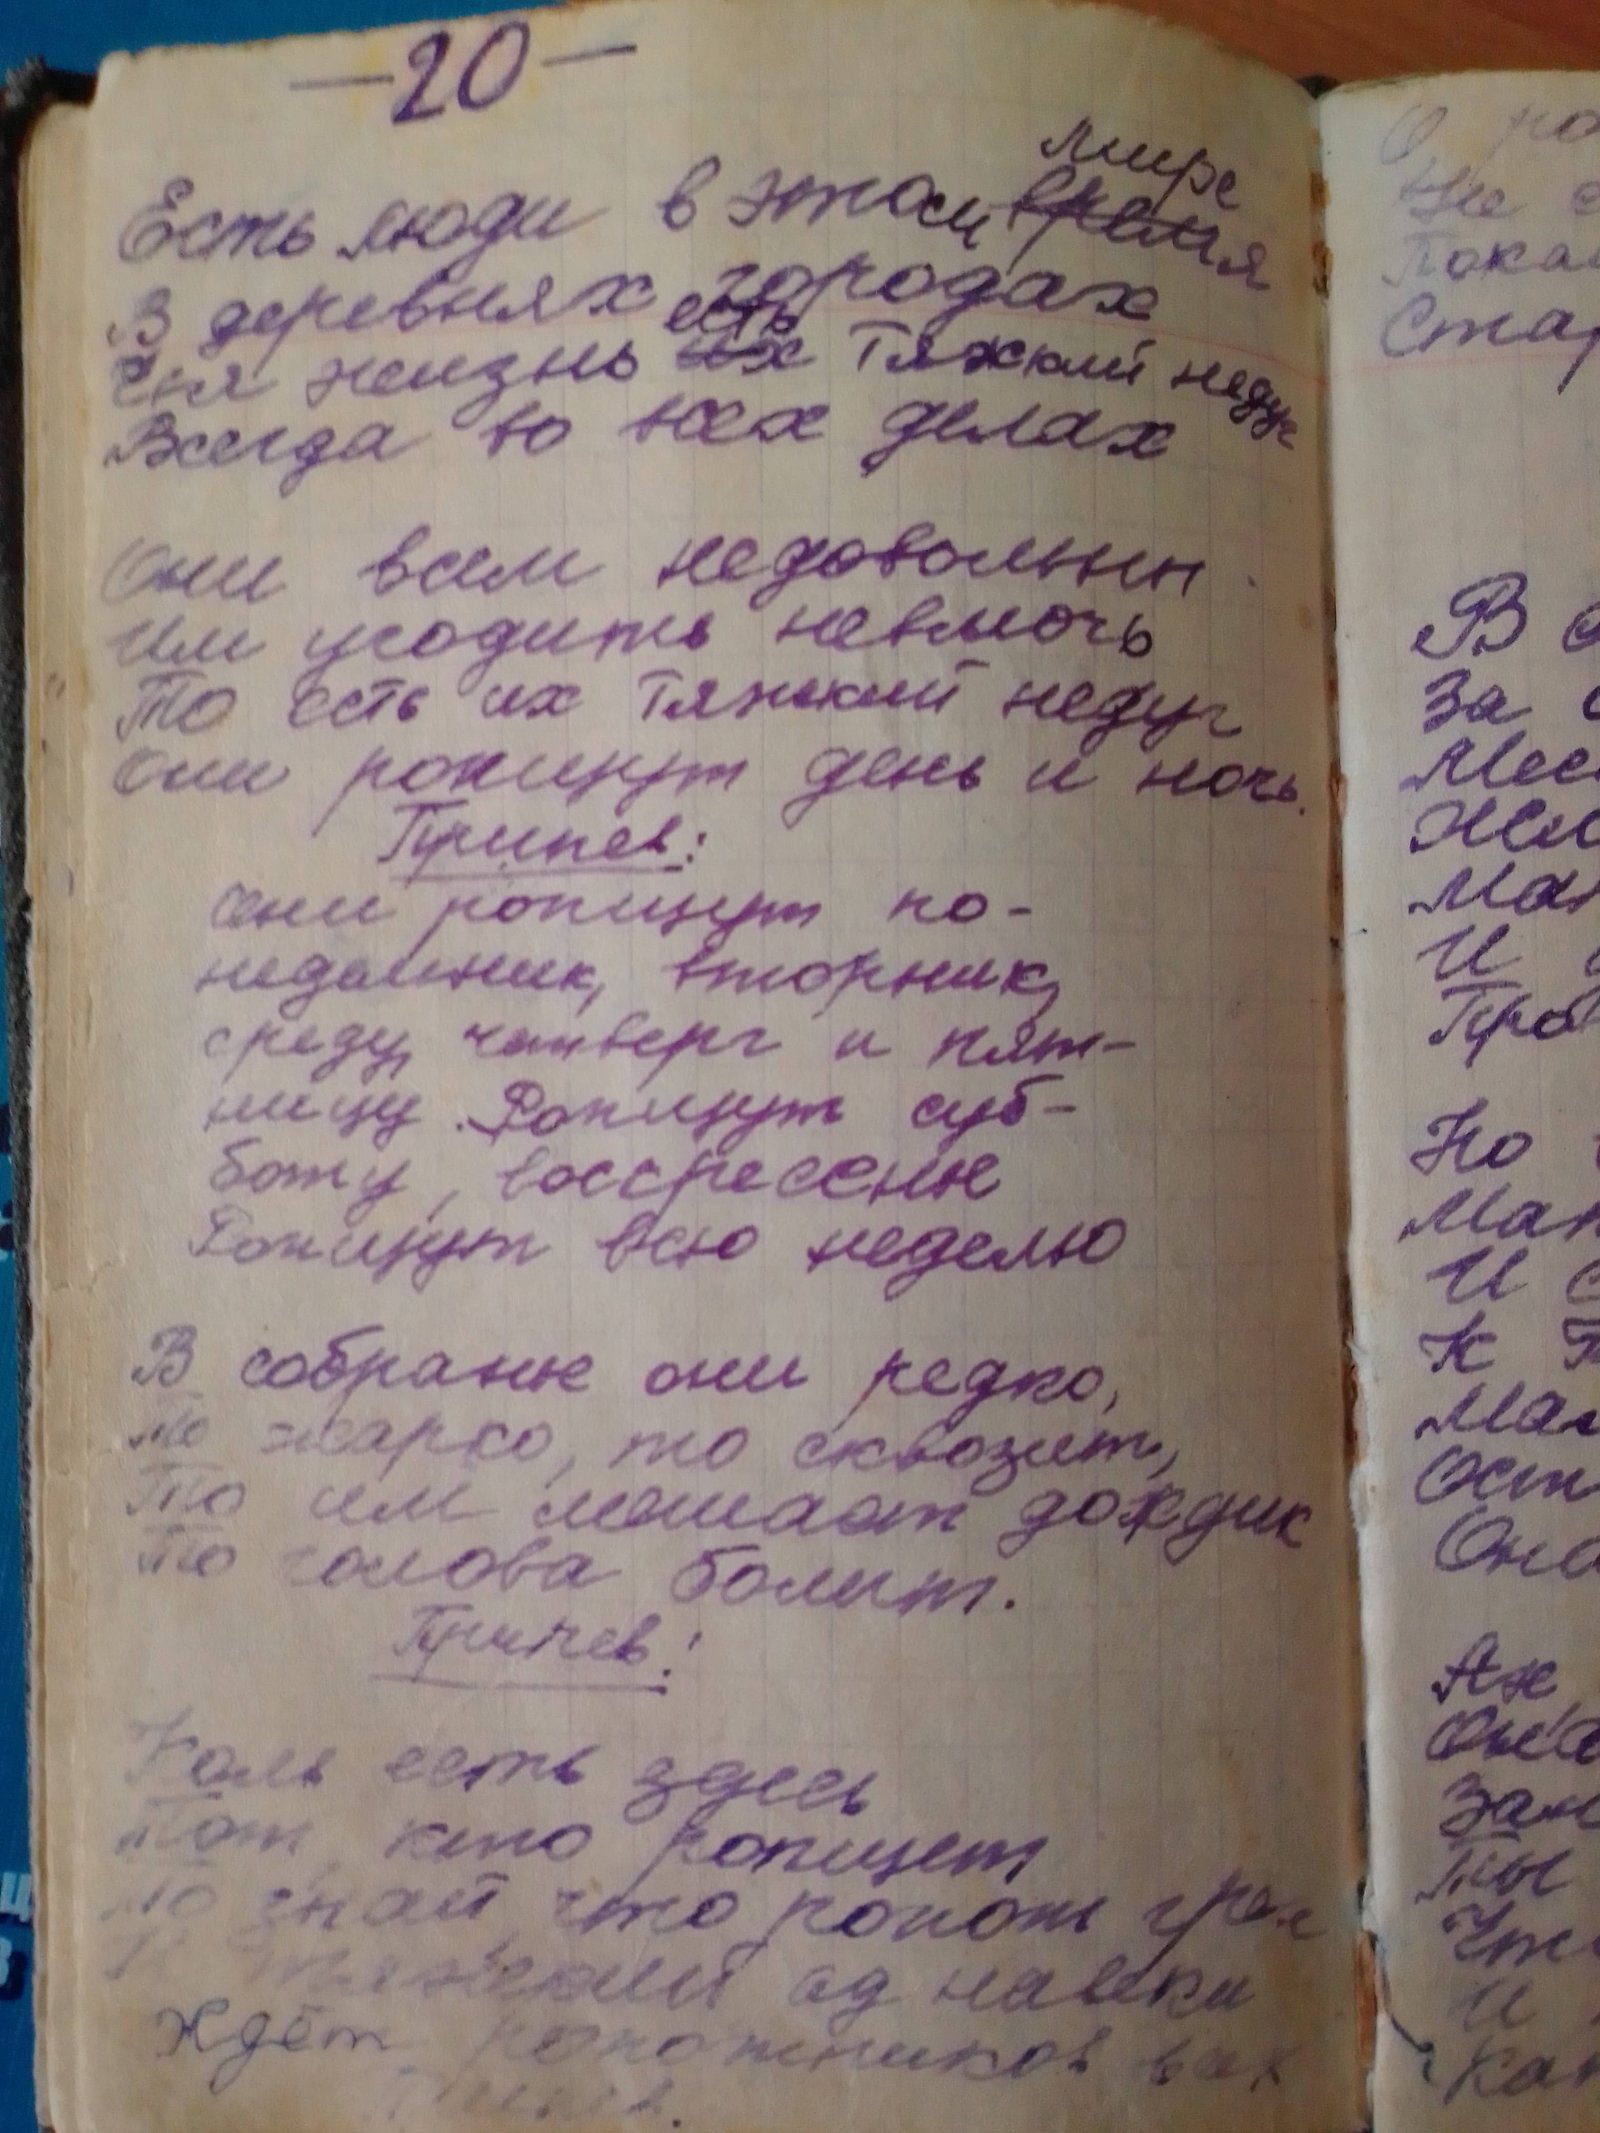 —20—
мире
Есть люди в этом время
В деревнях городах
есть
Чья жизнь их Тяжкий недуг
Всегда во всех делах
Они всем недовольны
Им угодить невмочь
То есть их Тяжкий недуг
Они ропщут день и ночь.
Припев:
Они ропщут по-
недельник, вторник,
среду, четверг и пят-
ницу. Ропщут суб-
боту, воскресенье
Ропщут всю неделю
В собранье они редко,
То жарко, то сквозит,
То им мешает дождик
То голова болит.
Припев:
Коль есть здесь
Тот, кто ропщет
То знай, что ропот грех
И тяжкий ад навеки
Ждёт ропотников всех
Припев.
О
Не
Ста
В
За
И
Про
Но
И
К
Ост
Она
Ты
И
Как